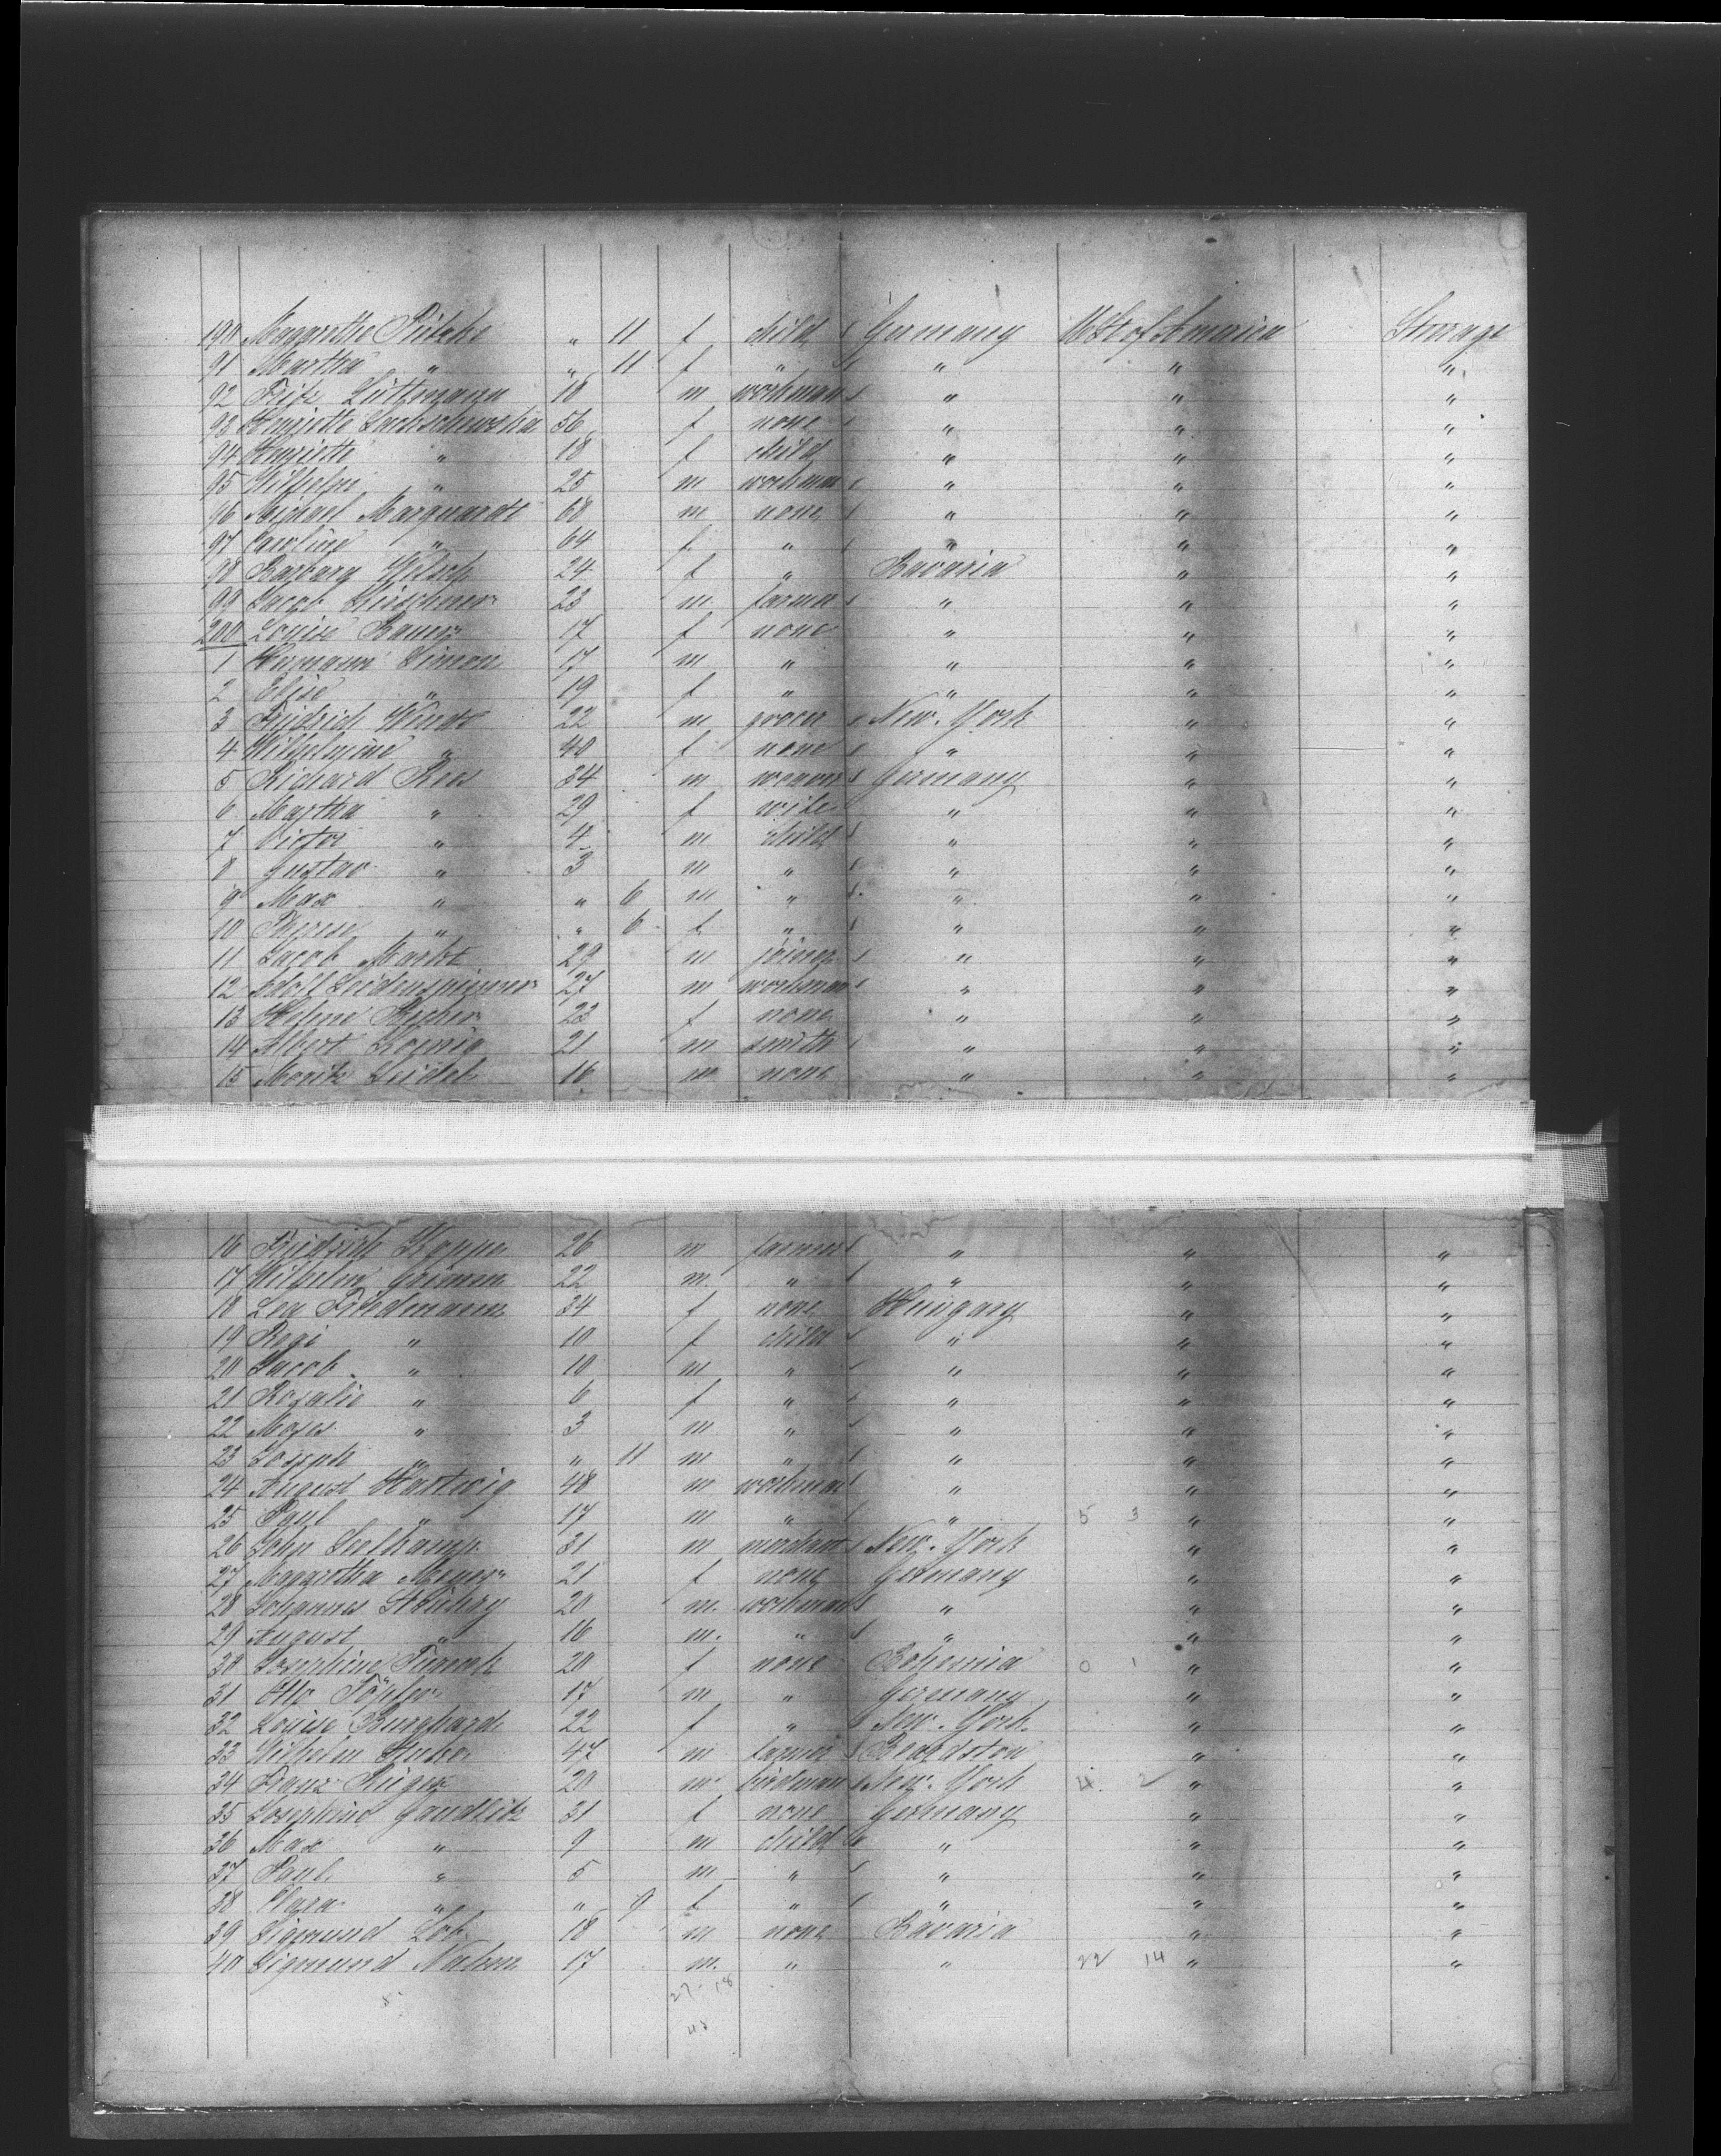 190 Margarethe " 11 f child Germany U St of America Steerage
91 Martha " " 11 f " " " "
92 Fritz Lüttmann 18 m workman " " "
93 Henriette 56 f none " " "
94 Henriette " 18 f child " " "
95 Wilhelm " 25 m workman " " "
96 Michael Marquardt 68 m none " " "
97 Caroline " 64 f " " " "
98 Barbara 24 f " Bavaria " "
99 Jacob Kirschner 23 m farmer " " "
200 Louise Bauer 17 f none " " "
1 Hermann Simon 17 m " " " "
2 Elise " 19 f " " " "
3 Friedrich Wendt 22 m grocer New-York " "
4 Wilhelmine " 40 f none " " "
5 Richard Rees 34 m weaver Germany " "
6 Martha " 29 f wife " " "
7 Victor " 4 m child " " "
8 Gustav " 3 m " " " "
9 Max " " 6 m " " " "
10 " " 6 f " " " "
11 Jacob Markt 29 m joiner " " "
12 Adolf Seidenspinner 27 m workman " " "
13 Helene 23 f none " " "
14 Albert Koenig 21 m smith " " "
15 Moritz Seidel 16 m none " " "
16 Friedrich Hoppe 26 m farmer " " "
17 Wilhelm Grimm 22 m " " " "
18 Lea Friedmann 34 f none Hungary " "
19 Regi " 10 f child " " "
20 Jacob " 10 m " " " "
21 Rosalie " 6 f " " " "
22 Moses " 3 m " " " "
23 Joseph " " 11 m " " " "
24 August Hartwig 48 m workman " " "
25 Paul " 17 m " " 5 3 " "
26 John Seelkamp 31 m merchant New-York " "
27 Margretha Meyer 21 f none Germany " "
28 Johannes 20 m workman " " "
29 August " 16 m " " " "
30 Josephine 20 f none Bohemia 0 1 " "
31 Otto Töpfer 17 m " Germany " "
32 Louise Burghard 22 f " New-York " "
33 Wilhelm 47 m farmer Beardston " "
34 Franz Rüger 20 m birdman New-York 4 2 " "
35 Josephine Gaudlitz 31 f none Germany " "
36 Max " 9 m child " " "
37 Paul " 5 m " " " "
38 Clara " " 9 f " " " "
39 Sigmund Löb 18 m none Bavaria " "
40 Sigmund 17 m " " 22 14 " "
27 18